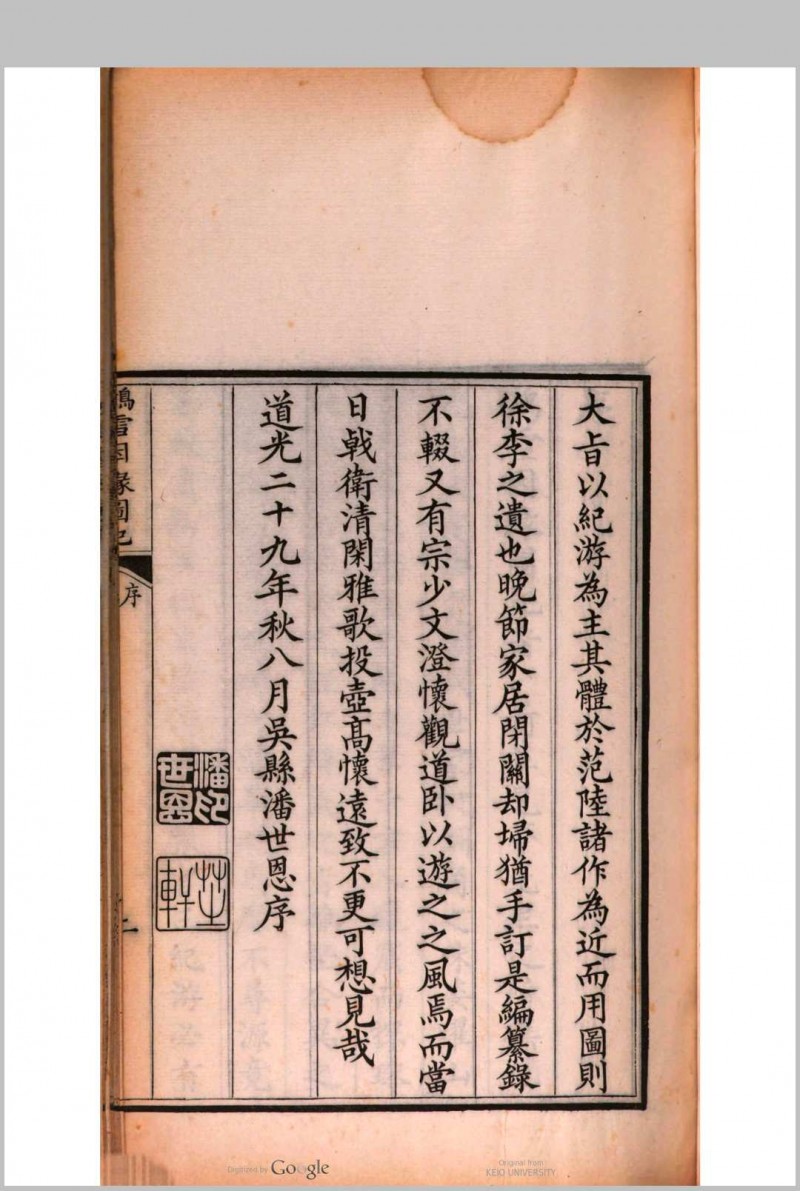 大旨以紀游為主其體於范陸諸作為近而用圖則
徐李之遺也晚節家居閉關却埽猶手訂是編纂錄
不輟又有宗少文澄懷觀道卧以遊之之風焉而當
日戟衛清閑雅歌投壺高懷遠致不更可想見哉
道光二十九年秋八月吳縣潘世恩序
潘世恩印
芝軒
鴻雪因緣圖記
序
二
Digitized by Google
Original from
KEIO UNIVERSITY